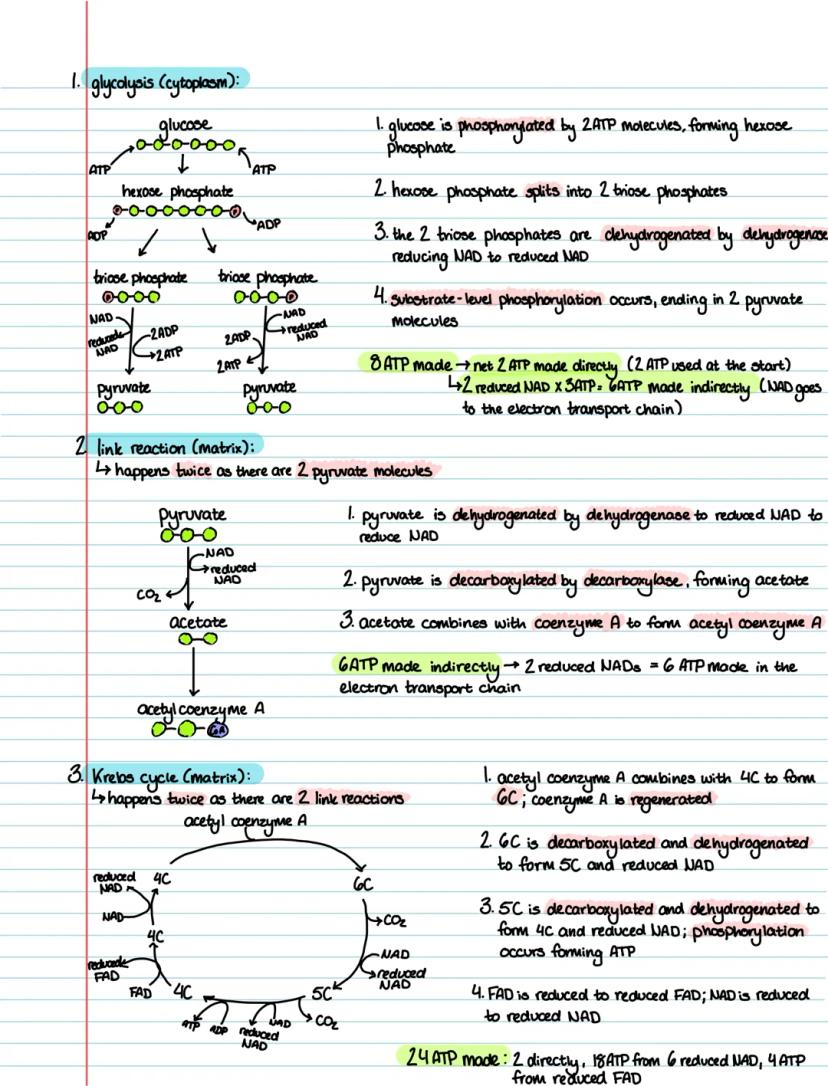 1. glycolysis (cytoplasm):
glucose
ATP
ATP
hexose phosphate
ADP
ADP
triose phosphate
triose phosphate
NAD
reduced
NAD
2ADP
2ATP
NAD
reduced
NAD
2ADP
2ATP
pyruvate
pyruvate
1. glucose is phosphorylated by 2ATP molecules, forming hexose
phosphate
2. hexose phosphate splits into 2 triose phosphates
3. the 2 triose phosphates are dehydrogenated by dehydrogenase
reducing NAD to reduced NAD
4. substrate-level phosphorylation occurs, ending in 2 pyruvate
molecules
8ATP made → net 2 ATP made directly (2 ATP used at the start)
↳ 2 reduced NAD x 3ATP = 6ATP made indirectly (NAD goes
to the electron transport chain)
2. link reaction (matrix):
↳ happens twice as there are 2 pyruvate molecules
pyruvate
NAD
reduced
NAD
CO₂
acetate
acetyl coenzyme A
CoA
1. pyruvate is dehydrogenated by dehydrogenase to reduced NAD to
reduce NAD
2. pyruvate is decarboxylated by decarboxylase, forming acetate
3. acetate combines with coenzyme A to form acetyl coenzyme A
6ATP made indirectly → 2 reduced NADs = 6 ATP made in the
electron transport chain
3. Krebs cycle (matrix):
↳ happens twice as there are 2 link reactions
acetyl coenzyme A
4C
6C
CO₂
NAD
reduced
NAD
5C
CO₂
NAD
reduced
NAD
ADP
ATP
4C
FAD
reduced
FAD
4C
NAD
reduced
NAD
1. acetyl coenzyme A combines with 4C to form
6C; coenzyme A is regenerated
2. 6C is decarboxylated and dehydrogenated
to form 5C and reduced NAD
3. 5C is decarboxylated and dehydrogenated to
form 4C and reduced NAD; phosphorylation
occurs forming ATP
4. FAD is reduced to reduced FAD; NAD is reduced
to reduced NAD
24 ATP made: 2 directly, 18ATP from 6 reduced NAD, 4ATP
from reduced FAD